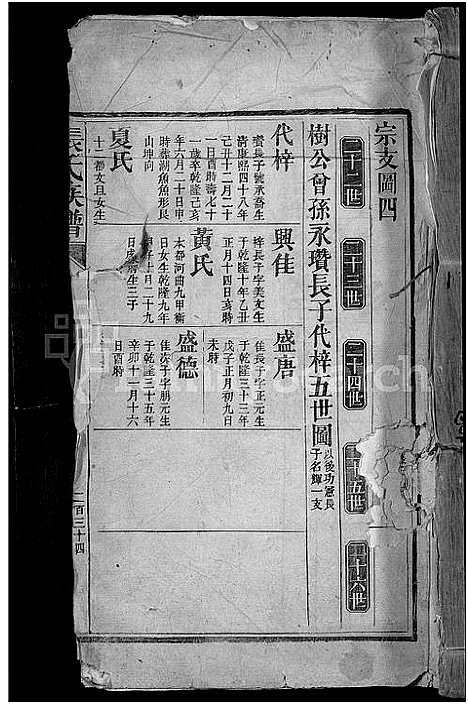 宗支圖四
二十二世
二十三世
二十四世
二十五世
二十六世
樹公曾孫永瓚長子代梓五世圖
以後功憲長
子名輝一支
代梓
瓚長子號承喬生
清康熙四十八年
己丑十二月二十
一日酉時壽七十
一歲乾隆己亥
年六月二十日申
時葬湖魚魚形艮
山坤向
夏氏
十二都文旦女生
興佳
梓長子字美文生
于乾隆十年乙丑
正月十四日亥時
黃氏
本都河曲九甲衡
日女生乾隆九年
甲子十月二十九
日
生三子
盛唐
佳長子字正元生
于乾隆三十三年
戊子正月初九日
未時
盛德
佳次子字朋元生
于乾隆三十五年
辛卯十一月十六
日酉時
張氏族譜
二百三十四